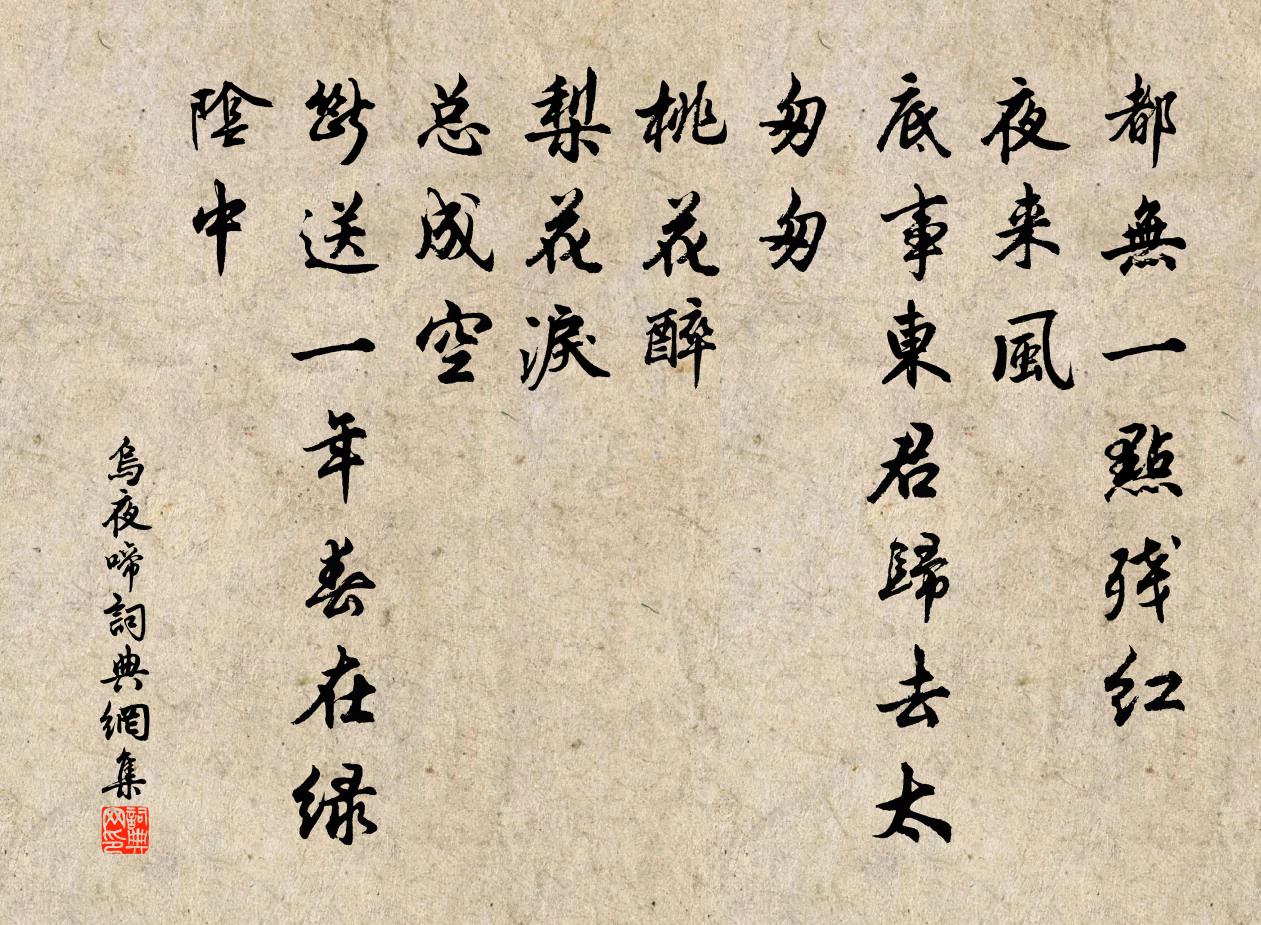 都無一點残红
夜来風
底事東君歸去太
匆匆
桃花醉
梨花淚
总成空
斷送一年春在绿
陰中
烏夜啼詞典網集
詞典
网印